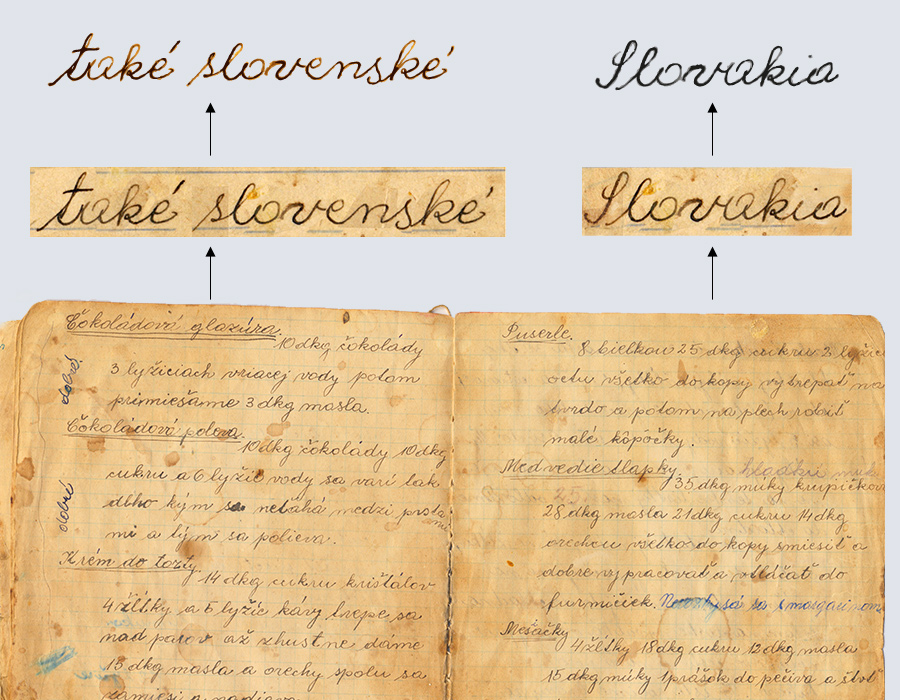 také slovenské
Slovakia
také slovenské
Slovakia
Čokoládová glazúra.
10 dkg čokolády
3 lyžiciach vriacej vody potom
primiešame 3 dkg masla.
dobré!
Čokoládová poleva.
10 dkg čokolády 10 dkg
cukru a 6 lyžíc vody sa varí tak
dlho kým sa neťahá medzi prsta
mi a tým sa polieva.
dobré
Krém do torty.
14 dkg cukru krištálov
4 žĺtky a 6 lyžíc kávy trepe sa
nad parov až zhustne dáme
15 dkg masla a orechy spolu sa
zamiesi a nadieva
Puserle.
8 bielkov 25 dkg cukru 2
octu všetko do kopy vytrepať na
tvrdo a potom na plech robiť
malé kôpôčky.
Medvedie tlapky.
35 dkg múky krupičkov
28 dkg masla 21 dkg cukru 14 dkg
orechov všetko do kopy smiesiť a
dobre vypracovať a vtláčať do
furmičiek.
Mesačky
4 žĺtky 18 dkg cukru 12 dkg masla
15 dkg múky 1 prášok do pečiva a